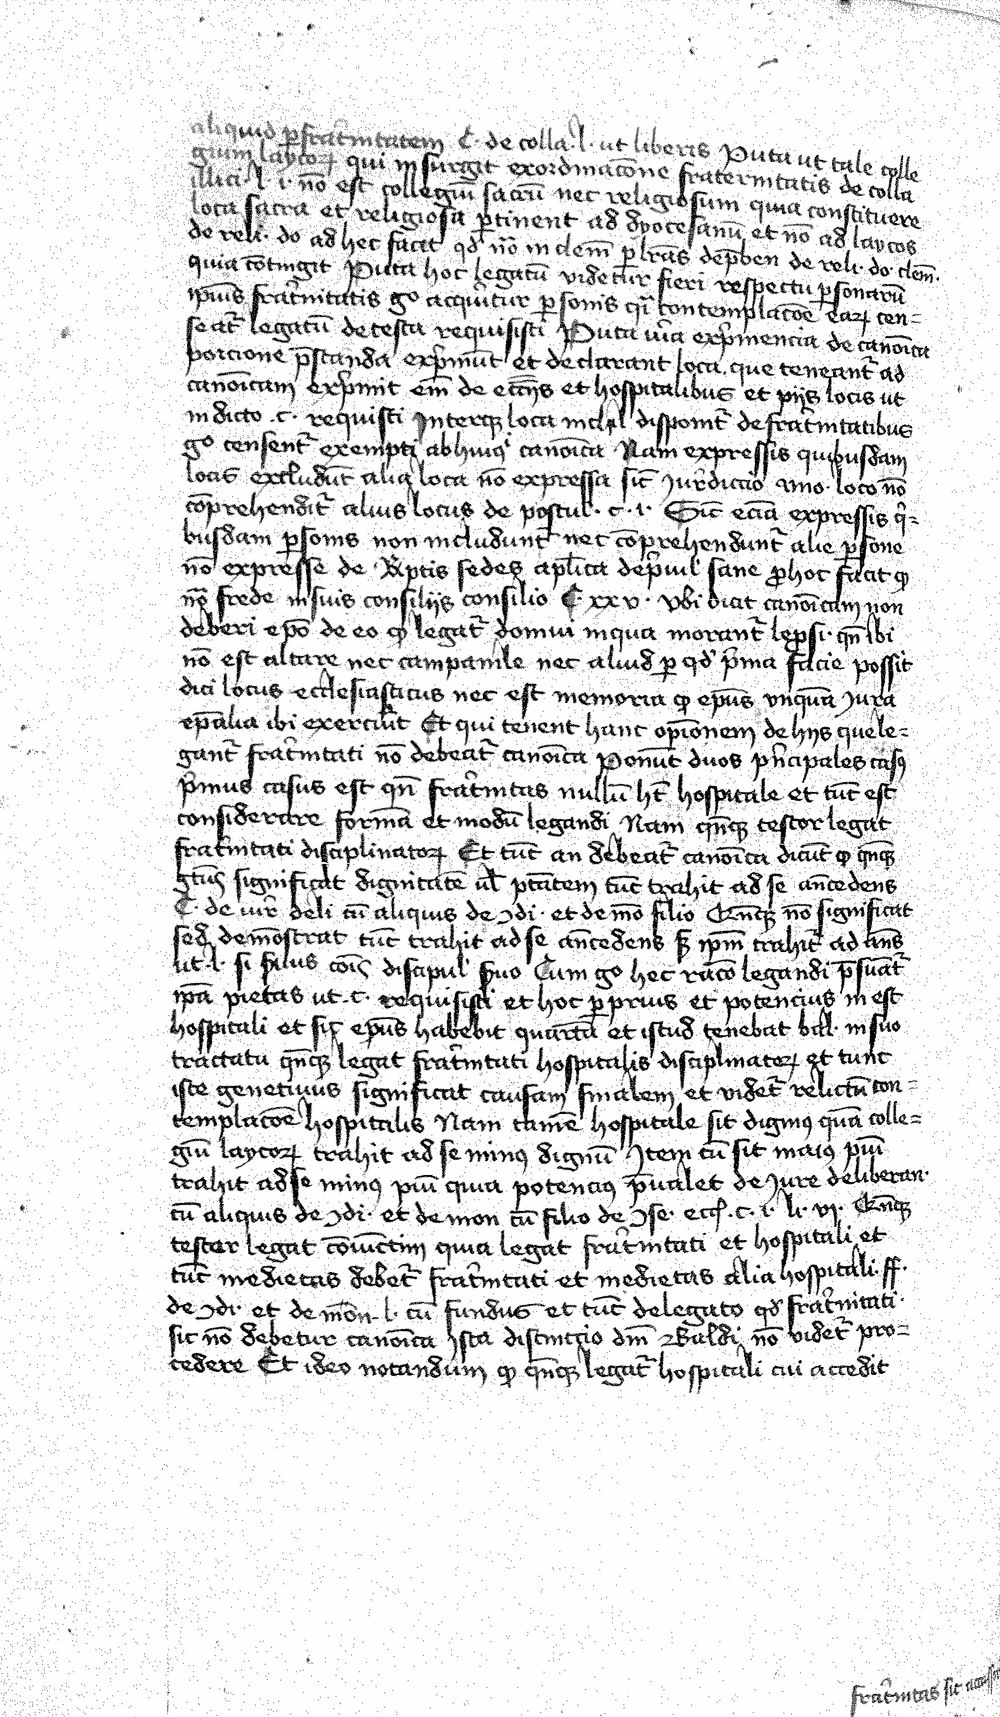 aliquid p fratͥnitatem C· de colla· l· ut liberis Puta ut tale colle
gium laycoꝝ qui insurgit exordinacōne fraternitatis de colla
illici· l· i· nō est collegiū sacrū nec religiosum quia constituere
loca sacra et religiosa ꝑtinent ad dyocesanū et nō ad laycos
de reli· do ad hec facit qď nō in clem̄ p lrās dep̄ben de reli· do· clem̄·
quia cōtingit Puta hoc legatū videtur fieri respectu ꝑsonarū
ip̄ius fratͥnitatis gͦ acquiritur ꝑsonis qͥ contemplacōe eaꝝ cen=
seatͬ legatū de testa requisisti Puta exp̄mencia de canōica
porcione p̄standa exp̄mūt et declarant loca que teneantͬ ad
canōicam exp̄mit em̄ de ecc̄iis et hospitalibus et piis locis ut
in dicto ·c· requisiti Interqꝫ loca disponitͬ de fratͥnitatibus
gͦ censentͬ exempti ab huiꝰ canōica Nam expressis quibusdam
locis excludūt alia loca nō expressa sic͛ Jurͥdictio loco nō
cōprehenditͬ alius locus de postul· c· i· Sic͛ eciā expressis qͥ=
busdam ꝑsonis non includuntͬ nec cōprehenduntͬ alie ꝑsone
nō expresse de Rͥptis sedes apl̄ica sane ꝓhoc facit ꝙ
nō frede in suis consiliis consilio C xxv· vbi dicit canōicam non
deberi ep̄o de eo ꝙ legatͬ domui inqua morantͬ lep̄si· qn̄ ibi
nō est altare nec campanile nec aliud ꝑ qď p̄ma facie possit
dici locus ecclesiasticus nec est memoria ꝙ ep̄us vnquā Jura
ep̄alia ibi exercuit Et qui tenent hanc opīonem de hiis que le=
gantͬ fratͥnitati nō debeatͬ canōica Ponūt duos pͥncipales casꝰ
pͥmus casus est qn̄ fratͥnitas nullū hͭ hospitale et tūc est
considerare formā et modū legandi Nam qn̄qꝫ testor legat
fratͥnitati disciplinatoꝝ Et tūc an debeatͬ canōica dicūt ꝙ qn̄qꝫ
gtūs significat dignitatē ul̄ ptātem tūc trahit ad se an̄cedens
C· de iurͥ deli cū aliquis de ↄdi· et de mō filio Qn̄qꝫ nō significat
sed demōstrat tūc trahit ad se an̄cedens ip̄m trahitͬ ad an̄s
ut· l· si fuius discipul fiuo Cum gͦ hec racō legandi p̄suatͬ
ip̄a pietas ut· c· requisisti et hoc ꝑ prius et potencius in est
hospitali et sic ep̄us habebit quartā et istud tenebat bal· in suo
tractatu qn̄qꝫ legat fratͥnitati hospitalis disciplinatoꝝ et tunc
iste genetiuus significat causam finalem et videtͬ relictū con=
templacōe hospitalis Nam tamē hospitale sit dignꝰ quā colle=
giū laycoꝝ trahit ad se minꝰ dignū Item cū sit maiꝰ piū
trahit ad se minꝰ piū quia potenciꝰ p̄ualet de Jure deliberan·
cū aliquis de ↄdi· et de mon cū filio de ↄse· eccl· c· i· li· vi· Qn̄qꝫ
tester legat cōiūctim quia legat fratͥnitati et hospitali et
tūc medietas debetͬ fratͥnitati et medietas alia hospitali ff·
de ↄdi· et de mōn· l· cū fundus et tūc delegato qď fratͥnitati·
sic nō debetur canōica ista distinctio dn̄i Baldi nō videtͬ pro=
cedere Et ideo notandum ꝙ qn̄qꝫ legatͬ hospitali cui accedit
fratͥnitas sit